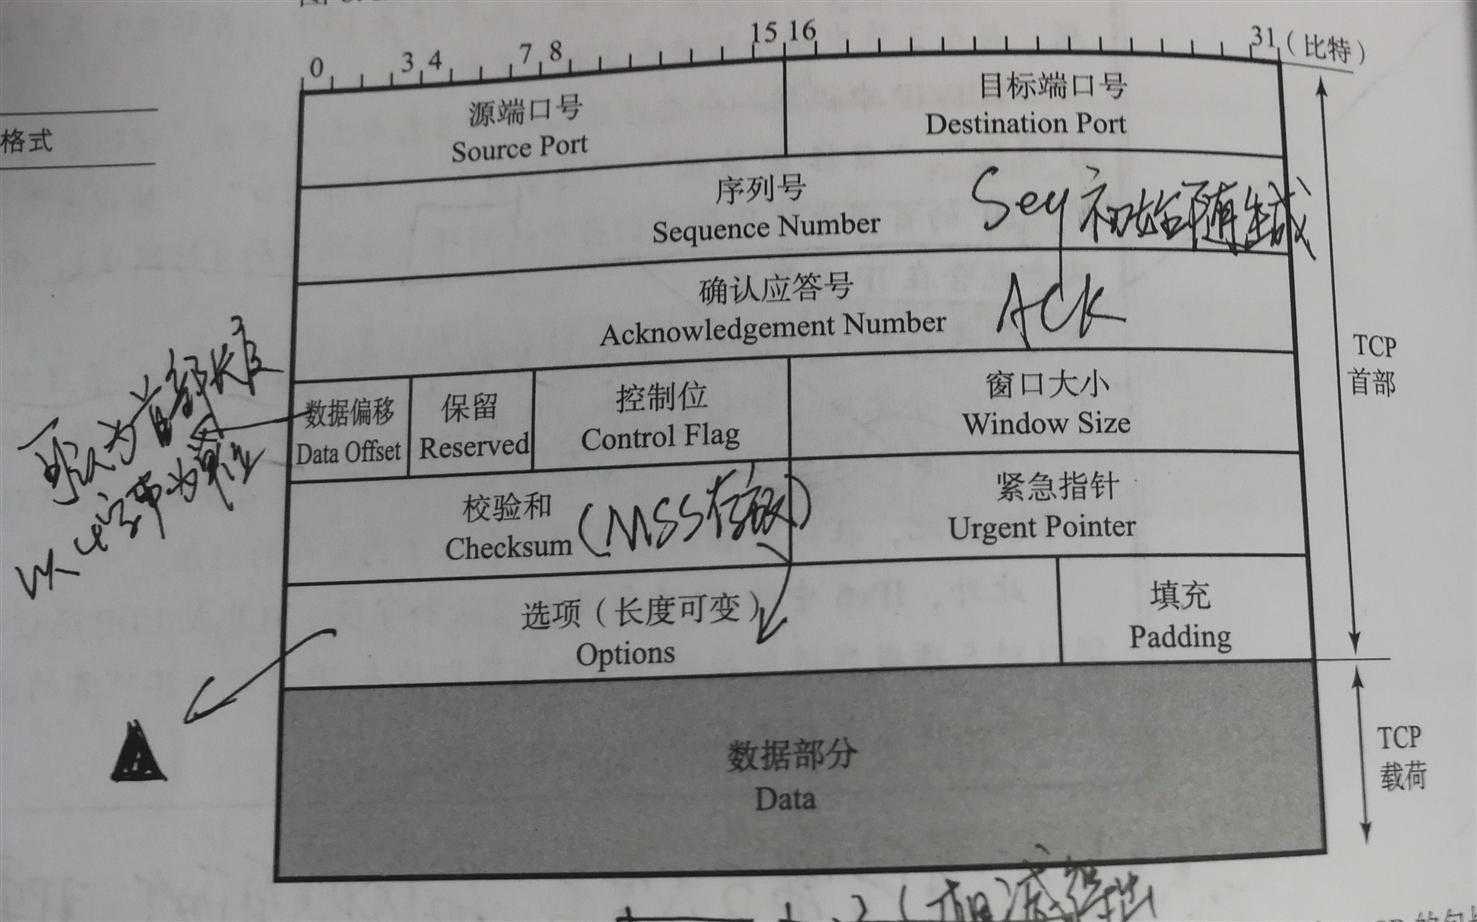 0 3 4 7 8 15 16 31 (比特)
源端口号
Source Port
目标端口号
Destination Port
格式
序列号
Sequence Number
Seq 初始随生成
确认应答号
Acknowledgement Number
ACK
TCP
首部
可认为首部长度
以4字节为单位
数据偏移
Data Offset
保留
Reserved
控制位
Control Flag
窗口大小
Window Size
校验和
Checksum
(MSS存放)
紧急指针
Urgent Pointer
选项（长度可变）
Options
填充
Padding
数据部分
Data
TCP
载荷